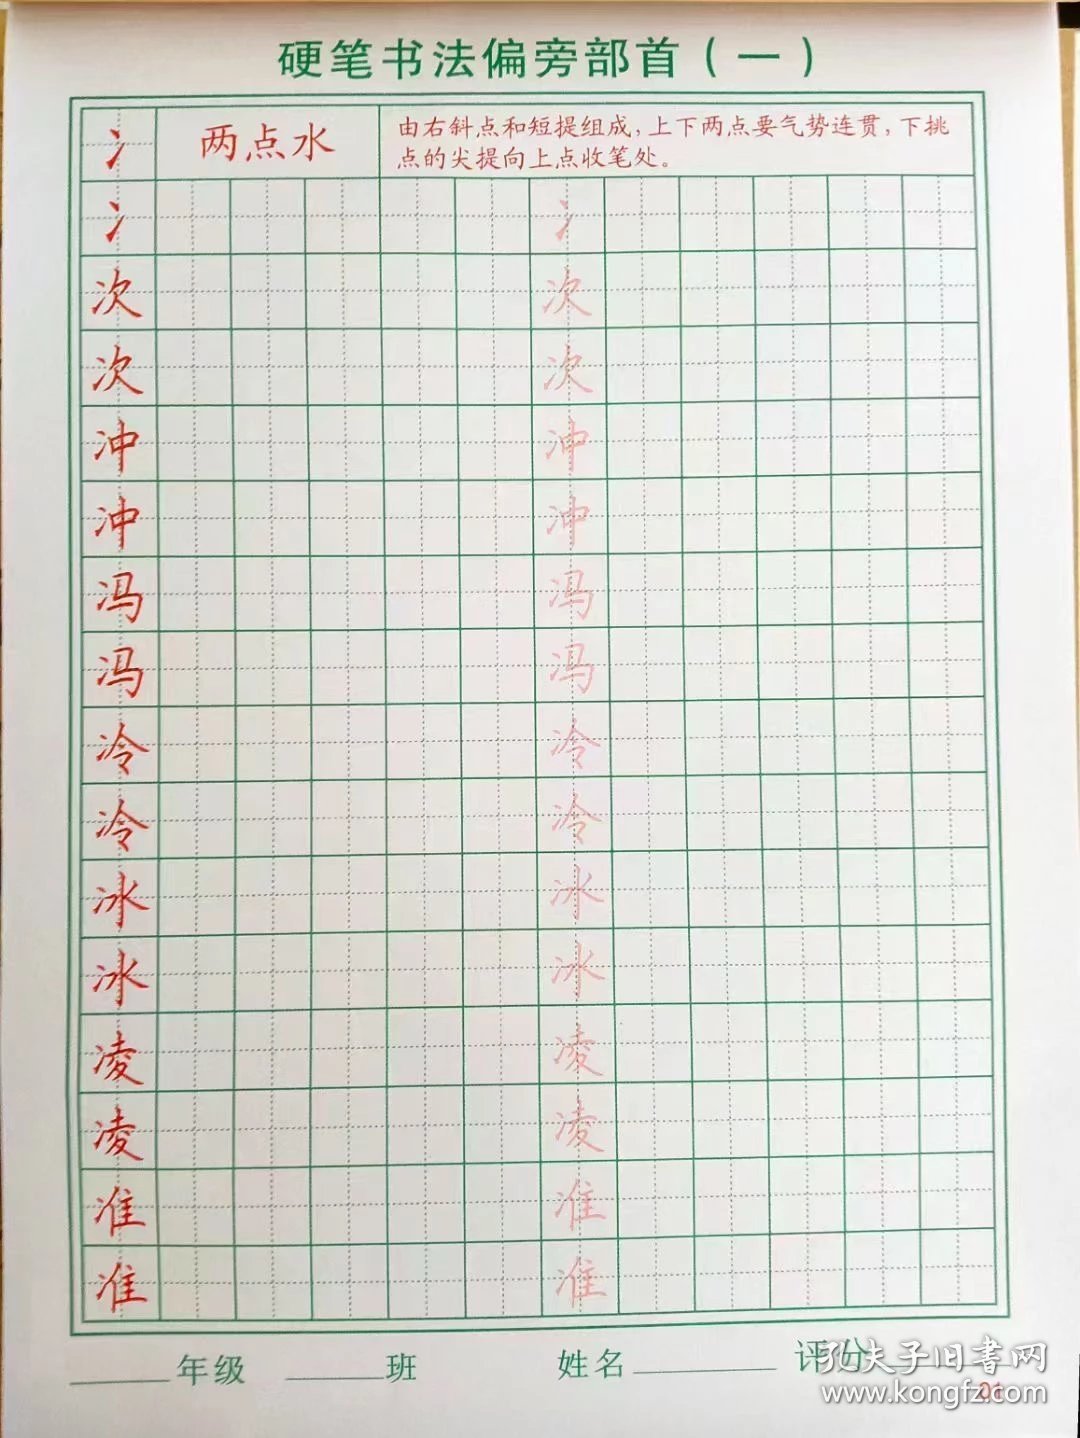 硬笔书法偏旁部首(一)
冫 两点水 由右斜点和短提组成,上下两点要气势连贯,下挑
点的尖提向上点收笔处。
冫 冫
次 次
次 次
冲 冲
冲 冲
冯 冯
冯 冯
冷 冷
冷 冷
冰 冰
冰 冰
凌 凌
凌 凌
准 准
准 准
年级 班 姓名 评分
孔夫子旧書网
www.kongfz.com
01